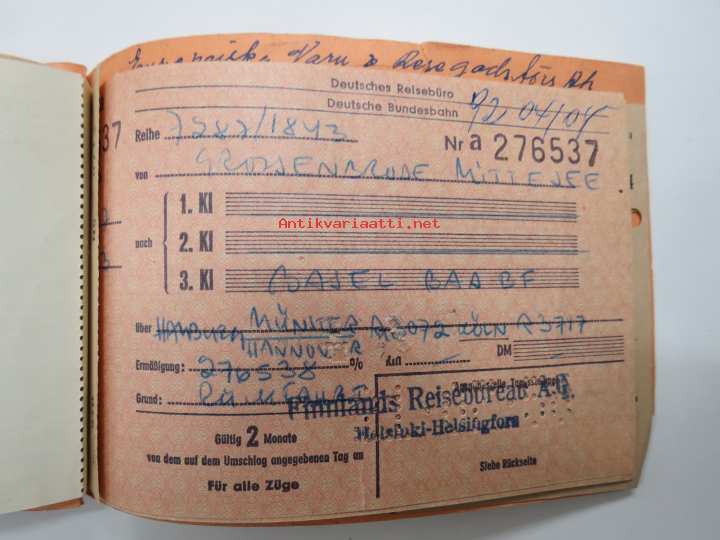 Deutsches Reisebüro
Deutsche Bundesbahn
92, 04/04
Reihe 7282/1843
Nr a 276537
von GROSSENBRODE MITTESEE
1. Kl
Antikvariaatti.net
nach 2. Kl
3. Kl BASEL BADBF
über HAMBURG MÜNSTER R3072 KÖLN R3717
HANNOVER
Ermäßigung: 276538 % Km DM
Grund:
Finnlands Reisebureau A.G.
Helsinki-Helsingfors
Gültig 2 Monate
von dem auf dem Umschlag angegebenen Tag an
Für alle Züge
Siehe Rückseite
37